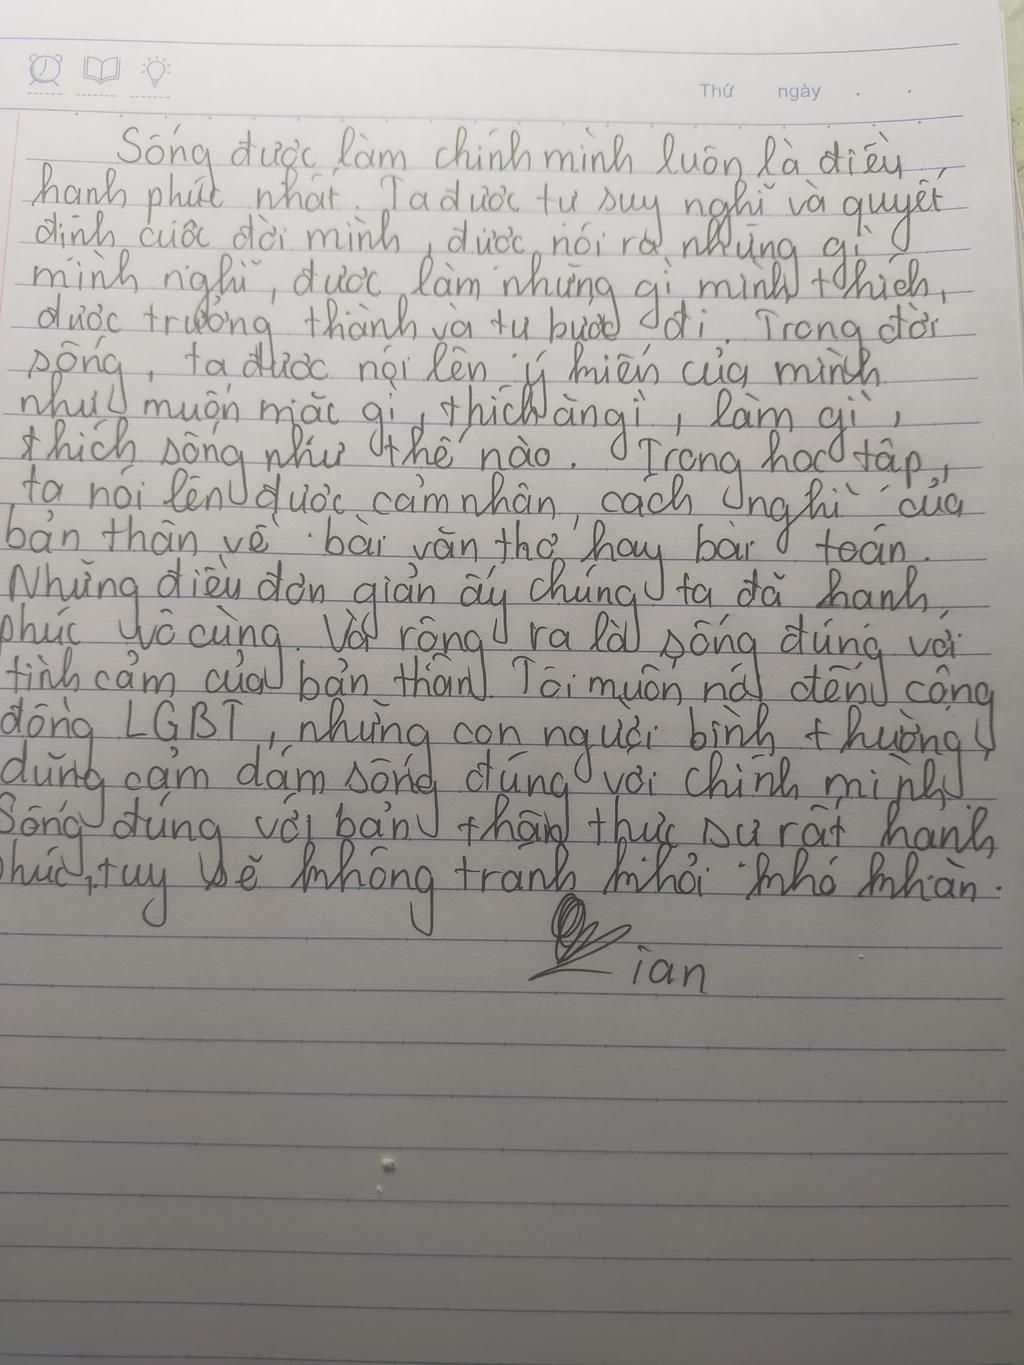 Thứ ngày . .
Sống được làm chính mình luôn là điều
hạnh phúc nhất. Ta được tự suy nghĩ và quyết
định cuộc đời mình, được nói ra những gì
mình nghĩ, được làm những gì mình thích,
được trưởng thành và tự bước đi. Trong đời
sống, ta được nói lên ý kiến của mình
như muốn mặc gì, thích ăn gì, làm gì,
thích sống như thế nào. Trong học tập,
ta nói lên được cảm nhận, cách nghĩ của
bản thân về bài văn thơ hay bài toán.
Những điều đơn giản ấy chúng ta đã hạnh
phúc vô cùng. Và rộng ra là sống đúng với
tình cảm của bản thân. Tôi muốn nói đến cộng
đồng LGBT, những con người bình thường
dũng cảm dám sống đúng với chính mình.
Sống đúng với bản thân thực sự rất hạnh
phúc, tuy sẽ không tránh khỏi khó khăn.
ian